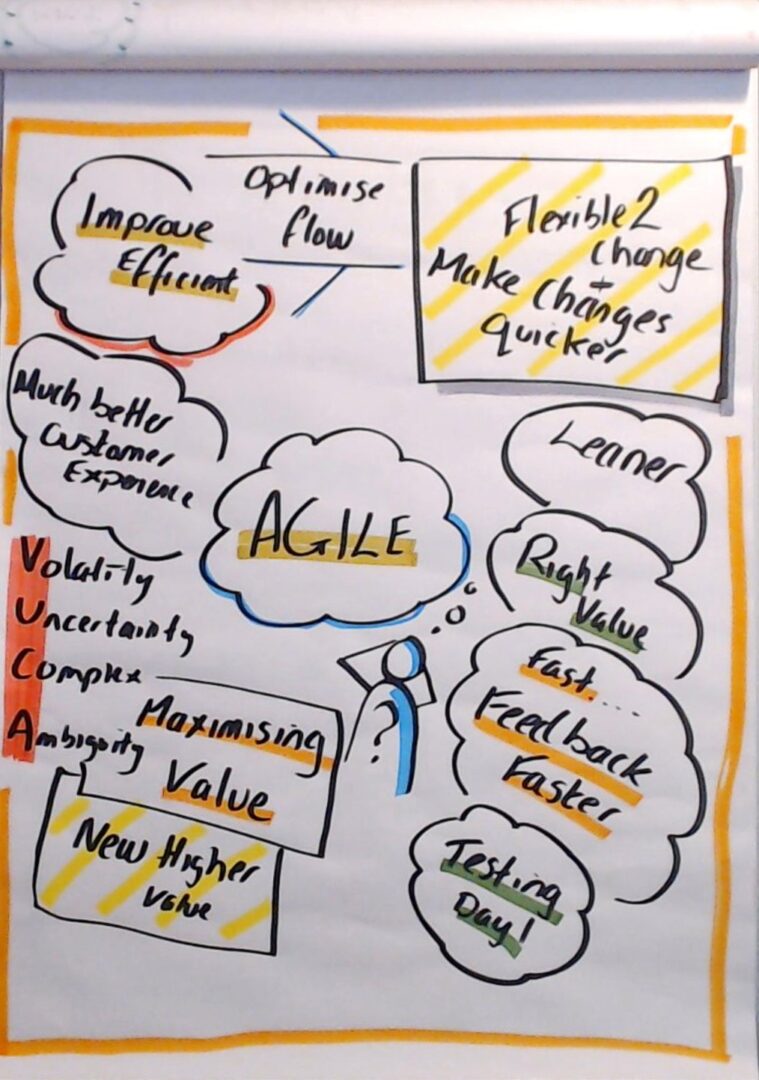 Improve
Efficient
Optimise
flow
Flexible 2
Change
+
Make Changes
Quicker
Much better
Customer
Experience
AGILE
Leaner
Right
Value
Fast....
Feedback
Faster
Testing
Day 1
Volatility
Uncertainty
Complex
Ambiguity
?
Maximising
Value
New Higher
Value